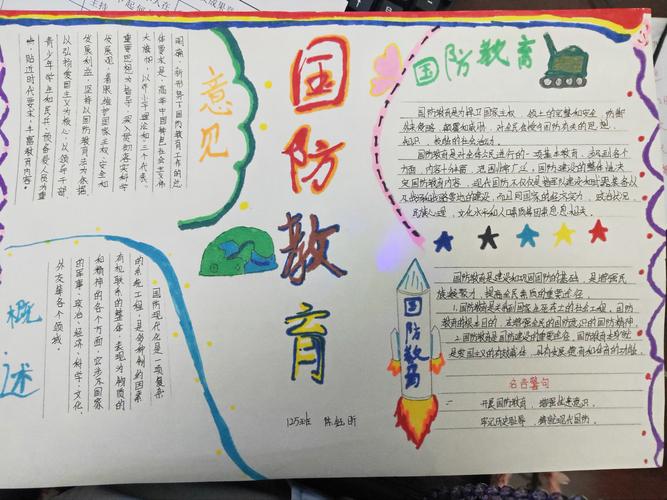 国防教育
意见
明确,新形势下国防教育工作的总
体要求是:高举中国特色社会主义伟
大旗帜,以邓小平理论和三个代表,
重要思想为指导,深入贯彻落实科学
发展观,着眼维护国家主权、安全和
发展利益,坚持以国防教育法为依据,
以弘扬爱国主义为核心,以领导干部
青少年学生和民兵、预备役人员为重
点,贴近时代要求,丰富教育内容。
概述
国防现代化是一项复杂
的系统工程,是多种制约因素
有机联系的整体,表现为物质的
和精神的各个方面,它涉及国家
的军事、政治、经济、科学、文化、
外交等各个领域。
125班 陈
国防教育
国防教育是为捍卫国家主权、领土的完整和安全,防御
外来侵略、颠覆和威胁,对全民有关国防的思想、
知识、
国防教育是对全体公民进行的一项基本教育,涉及到各个
方面,内容十分丰富,范围非常广泛,国防建设的整体性决
定国防教育内容,现代国防不仅仅是
的建设,而且同国家的经济实力、政治状况、
民族心理、文化水平和人口素质等因素息息相关。
国防教育是建设和巩固国防的基础,是增强民
族凝聚力、提高全民素质的重要途径。
1.国防教育是关系到国家生死存亡的社会工程,国防
教育的根本目的,在增强全民的国防意识和国防精神。
2.国防教育是国防建设的重要途径,国防教育
是爱国主义的有效载体,具有
国防教育
名言警句
开展国防教育,增强忧患意识。
牢记历史耻辱,铸就现代国防。